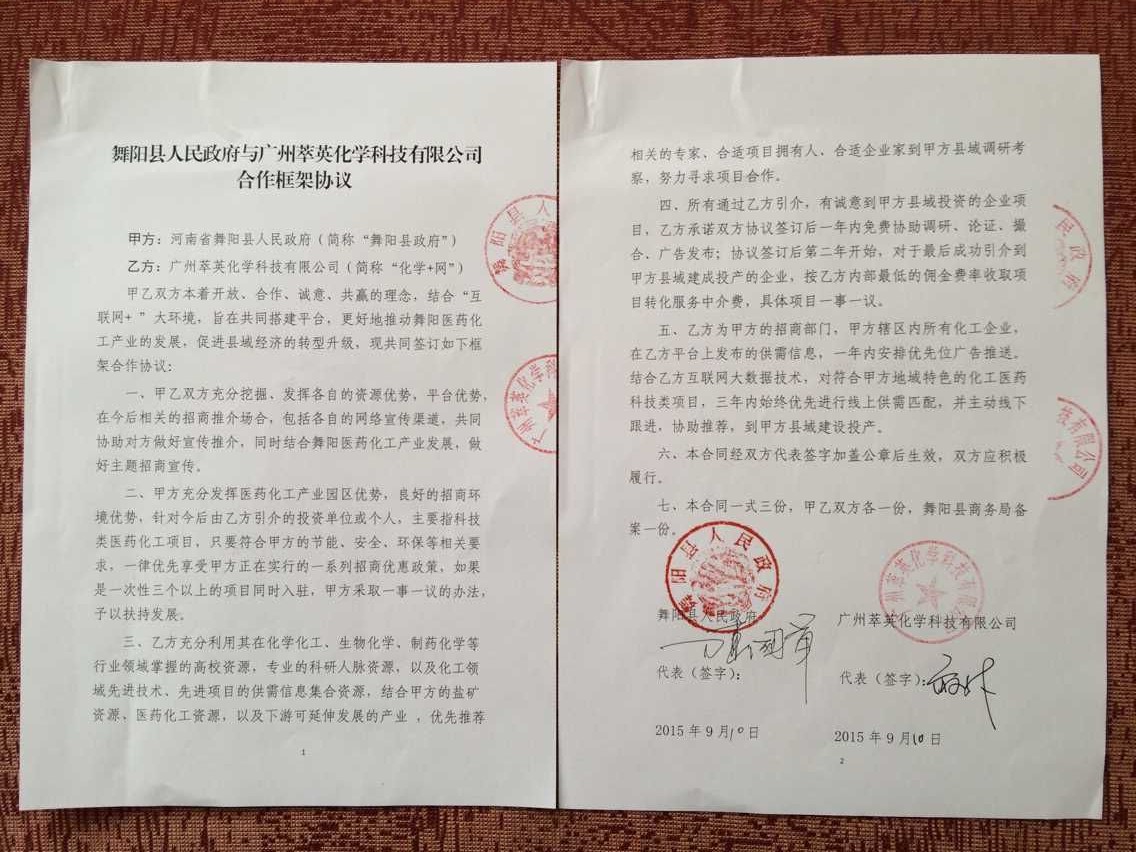 舞阳县人民政府与广州萃英化学科技有限公司
合作框架协议
甲方：河南省舞阳县人民政府（简称“舞阳县政府”）
乙方：广州萃英化学科技有限公司（简称“化学+网”）
甲乙双方本着开放、合作、诚意、共赢的理念，结合“互
联网+ ”大环境，旨在共同搭建平台，更好地推动舞阳医药化
工产业的发展，促进县域经济的转型升级，现共同签订如下框
架合作协议：
一、甲乙双方充分挖掘、发挥各自的资源优势，平台优势，
在今后相关的招商推介场合，包括各自的网络宣传渠道，共同
协助对方做好宣传推介，同时结合舞阳医药化工产业发展，做
好主题招商宣传。
二、甲方充分发挥医药化工产业园区优势，良好的招商环
境优势，针对今后由乙方引介的投资单位或个人，主要指科技
类医药化工项目，只要符合甲方的节能、安全、环保等相关要
求，一律优先享受甲方正在实行的一系列招商优惠政策，如果
是一次性三个以上的项目同时入驻，甲方采取一事一议的办法，
予以扶持发展。
三、乙方充分利用其在化学化工、生物化学、制药化学等
行业领域掌握的高校资源，专业的科研人脉资源，以及化工领
域先进技术、先进项目的供需信息集合资源，结合甲方的盐矿
资源、医药化工资源，以及下游可延伸发展的产业 ，优先推荐
1
舞阳县人
广州萃英化学科
相关的专家、合适项目拥有人、合适企业家到甲方县域调研考
察，努力寻求项目合作。
四、所有通过乙方引介，有诚意到甲方县域投资的企业项
目，乙方承诺双方协议签订后一年内免费协助调研、论证、撮
合、广告发布；协议签订后第二年开始，对于最后成功引介到
甲方县域建成投产的企业，按乙方内部最低的佣金费率收取项
目转化服务中介费，具体项目一事一议。
五、乙方为甲方的招商部门，甲方辖区内所有化工企业，
在乙方平台上发布的供需信息，一年内安排优先位广告推送。
结合乙方互联网大数据技术，对符合甲方地域特色的化工医药
科技类项目，三年内始终优先进行线上供需匹配，并主动线下
跟进，协助推荐，到甲方县域建设投产。
六、本合同经双方代表签字加盖公章后生效，双方应积极
履行。
七、本合同一式三份，甲乙双方各一份，舞阳县商务局备
案一份。
民政府
技有限公司
舞阳县人民政府
广州萃英化学科技有限公司
舞阳县人民政府
广州萃英化学科技有限公司
代表（签字）：
代表（签字）：
2015 年 9 月 10 日
2015 年 9 月 10 日
2